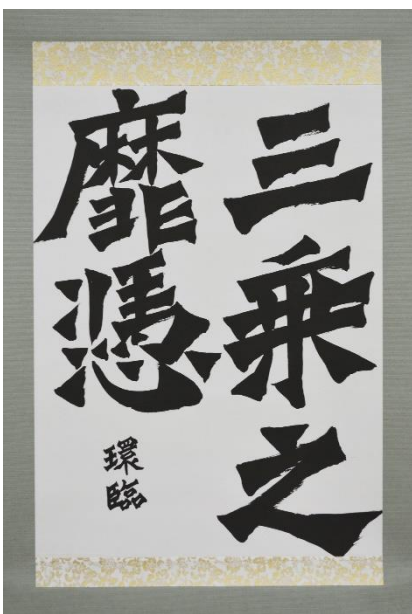 三乗之
靡憑
環臨